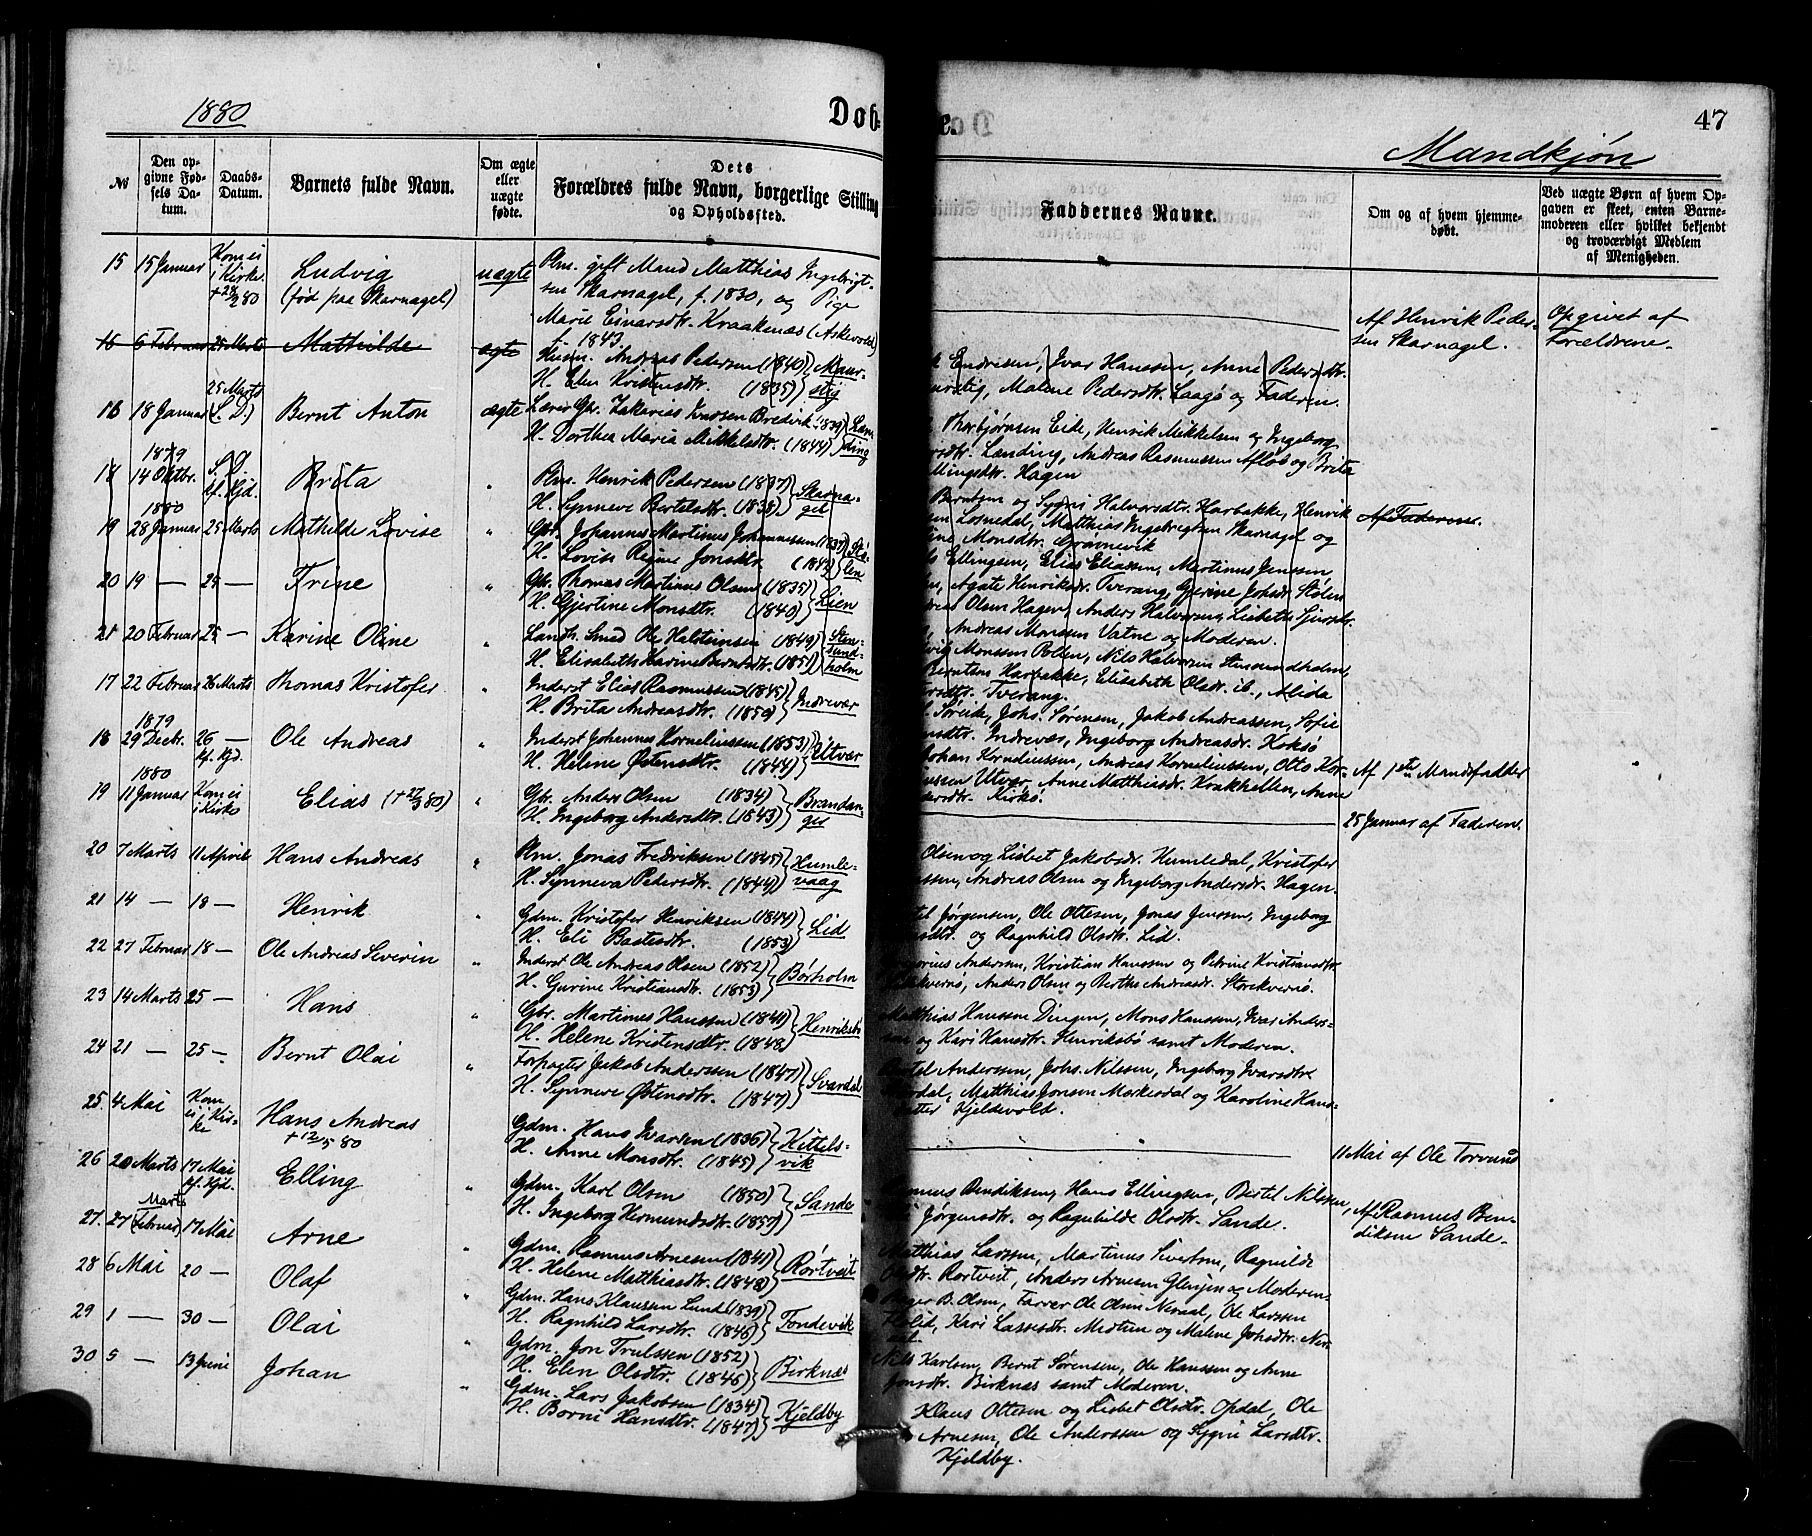 1880
Døb-
e.
47
Mandkjøn
№
Den op-
givne Fød-
sels Da-
tum.
Daabs-
Datum.
Barnets fulde Navn.
Om ægte
eller
uægte
fødte.
Dets
Forældres fulde Navn, borgerlige Stilling
og Opholdssted.
Faddernes Navne.
Om og af hvem hjemme-
døbt.
Ved uægte Børn af hvem Op-
gaven er skeet, enten Barne-
moderen eller hvilket bekjendt
og troværdigt Medlem
af Menigheden.
15 15 Januar Kom ei i Kirke. Ludvig uægte Plm. gift Mand Matthias Ingebrigt-
(fød paa Skarnagel) sen Skarnagel, f. 1830, og Pige
Marie Einarsdtr. Kraakenæs (Askevold)
f. 1843.
Af Henrik Peder-
sen Skarnagel.
Opgivet af
Forældrene.
16 6 Februar 25 Marts Mathilde ægte Husm. Andreas Pedersen (1840) Maur-
H. Elen Kristensdtr. (1835) stig
Endresen, Ivar Hanssen, Anne Pedersdtr.
Malene Pedersdtr. Laagø og Faderen.
16 18 Januar 25 Marts (S. D.) Bernt Anton ægte Lærer Gbr. Zakarias Ivarsen Bredvik (1839) Læn-
H. Dorthea Maria Mikkelsdtr. (1844) ding
Thorbjørnsen Eide, Henrik Mikkelsen og Ingeborg
Lænding, Andreas Rasmussen Afløb og Brita
Ellingsdtr. Hagen
1879
18 14 Oktbr. S. D. kf. Hjd. Brita " Plm. Henrik Pedersen (1837) Skarna-
H. Synneve Bertelsdtr. (1838) gel
Berntsen og Sygni Halvorsdtr. Harbakke, Henrik
Losnedal, Matthias Ingebrigtsen Skarnagel og
Monsdtr. Grøvnevik
Af Faderen.
1880
19 28 Januar 25 Marts Mathilde Lovise " Gbr. Johannes Martinus Johannessen (1837) Stø-
H. Lovise Regine Jonsdtr. (1843) len
Ellingsen, Elias Eliassen, Martinus Jenssen
Agate Henriksdtr. Tverang, Gjerine Johsdtr. Stølen
20 19 — 25 — Trine " Gbr. Thomas Martinus Olsen (1835) Lien
H. Gjertine Monsdtr. (1840)
Olsen Hagen, Anders Halvorsen, Lisbeth Sjursdtr.
Andreas Monssen Vatne og Moderen.
21 20 Februar 25 — Karine Oline " Landh. Smed Ole Halstensen (1849) Sten-
H. Elisabeth Karine Berntsdtr. (1851) sund-
holm
Monssen Polden, Nils Halvorsen Stensundholm,
Berntsen Harbakke, Elisabeth Olsdr. ib., Alida
Tverang.
17 22 Februar 26 Marts Thomas Kristofer " Inderst Elias Rasmussen (1845) Indrevær
H. Brita Andreasdtr. (1850)
Søreik, Johs. Sørensen, Jakob Andreassen, Sofie
Indrevær, Ingeborg Andreasdr. Koksø
1879
18 29 Decbr. 26 — kf. Hjd. Ole Andreas " Inderst Johannes Korneliussen (1853) Utvær
H. Helene Østensdtr. (1844)
Johan Korneliussen, Andreas Korneliussen, Otto Kor-
Utvær, Anne Matthiasdr. Krakhellen, Anne
Kirkø.
Af 1ste Mandsfadder
1880
19 11 Januar Kom ei i Kirke Elias " Gbr. Anders Olsen (1834) Brandan-
H. Ingeborg Andersdtr. (1843) ger
25 Januar af Faderen.
20 7 Marts 11 April Hans Andreas " Plm. Jonas Fredriksen (1845) Humle-
H. Synneva Pedersdtr. (1844) vaag
Olsen og Lisbet Jakobsdr. Humledal, Kristofer
Andreas Olsen og Ingeborg Andersdr. Hagen.
21 14 — 18 — Henrik " Gdm. Kristofer Henriksen (1844) Lid
H. Eli Bastesdtr. (1853)
Jørgensen, Ole Ottesen, Jonas Jenssen, Ingeborg
og Ragnhild Olsdtr. Lid.
22 27 Februar 18 — Ole Andreas Severin " Inderst Ole Andreas Olsen (1852) Børholm
H. Gurine Kristiansdtr. (1853)
Andersen, Kristian Hanssen og Petrine Kristiansdtr.
Anders Olsen og Berthe Andreasdr. Storekvernø.
23 14 Marts 25 — Hans " Gbr. Martinus Hanssen (1841) Henriksbø
H. Helene Kristensdtr. (1848)
Matthias Hanssen Dingen, Mons Hanssen, Ivar Anders-
sen og Kari Hansdtr. Henriksbø samt Moderen.
24 21 — 25 — Bernt Olai " Forpagter Jakob Anderssen (1847) Svardal
H. Synneve Østensdtr. (1847)
Bertel Andersen, Johs. Nilssen, Ingeborg Ivarsdtr.
Svardal, Matthias Jonsen Morkesdal og Karoline Hans-
datter Kjeldevold.
25 4 Mai Kom ei i Kir-
ke Hans Andreas " Gdm. Hans Ivarsen (1836) Kittels-
+ 12/5 80 H. Anne Monsdtr. (1845) vik
11 Mai af Ole Torvund
26 20 Marts 17 Mai kf. Hjd. Elling " Gdm. Karl Olsen (1850) Sande
H. Ingeborg Hermundsdtr. (1857)
Rasmus Bendiksen, Hans Ellingsen, Bertel Nilssen,
Jørgensdtr. og Ragnhilde Olsdtr. Sande.
Af Rasmus Ben-
diksen Sande.
Marts
27. 27 (Februar) 17 Mai Arne " Gdm. Rasmus Arnesen (1841) Rørtveit
H. Helene Matthiasdtr. (1848)
Matthias Larssen, Martinus Sivertsen, Ragnilde
Olsdtr. Rortveit, Anders Arnesen Glenjen og Moderen.
28 6 Mai 20 — Olaf " Gdm. Hans Klausen Lund (1839) Tondevik
H. Ragnhild Larsdtr. (1846)
B. Olsen, Farver Ole Olsen Neraal, Ole Larssen
Kari Lassesdtr. Midtun og Malene Johsdtr.
29 1 — 30 — Olai " Gdm. Jon Trulssen (1852) Birknæs
H. Elen Olsdtr. (1846)
Nils Karlsen, Bernt Sørensen, Ole Hanssen og Anne
Jonsdtr. Birknæs samt Moderen.
30 5 — 13 Juni Johan " Gdm. Lars Jakobsen (1834) Kjeldby
H. Borni Hansdtr. (1847)
Klaus Ottesen og Lisbet Olsdtr. Opdal, Ole
Arnesen, Ole Anderssen og Sygni Larsdtr.
Kjeldby.